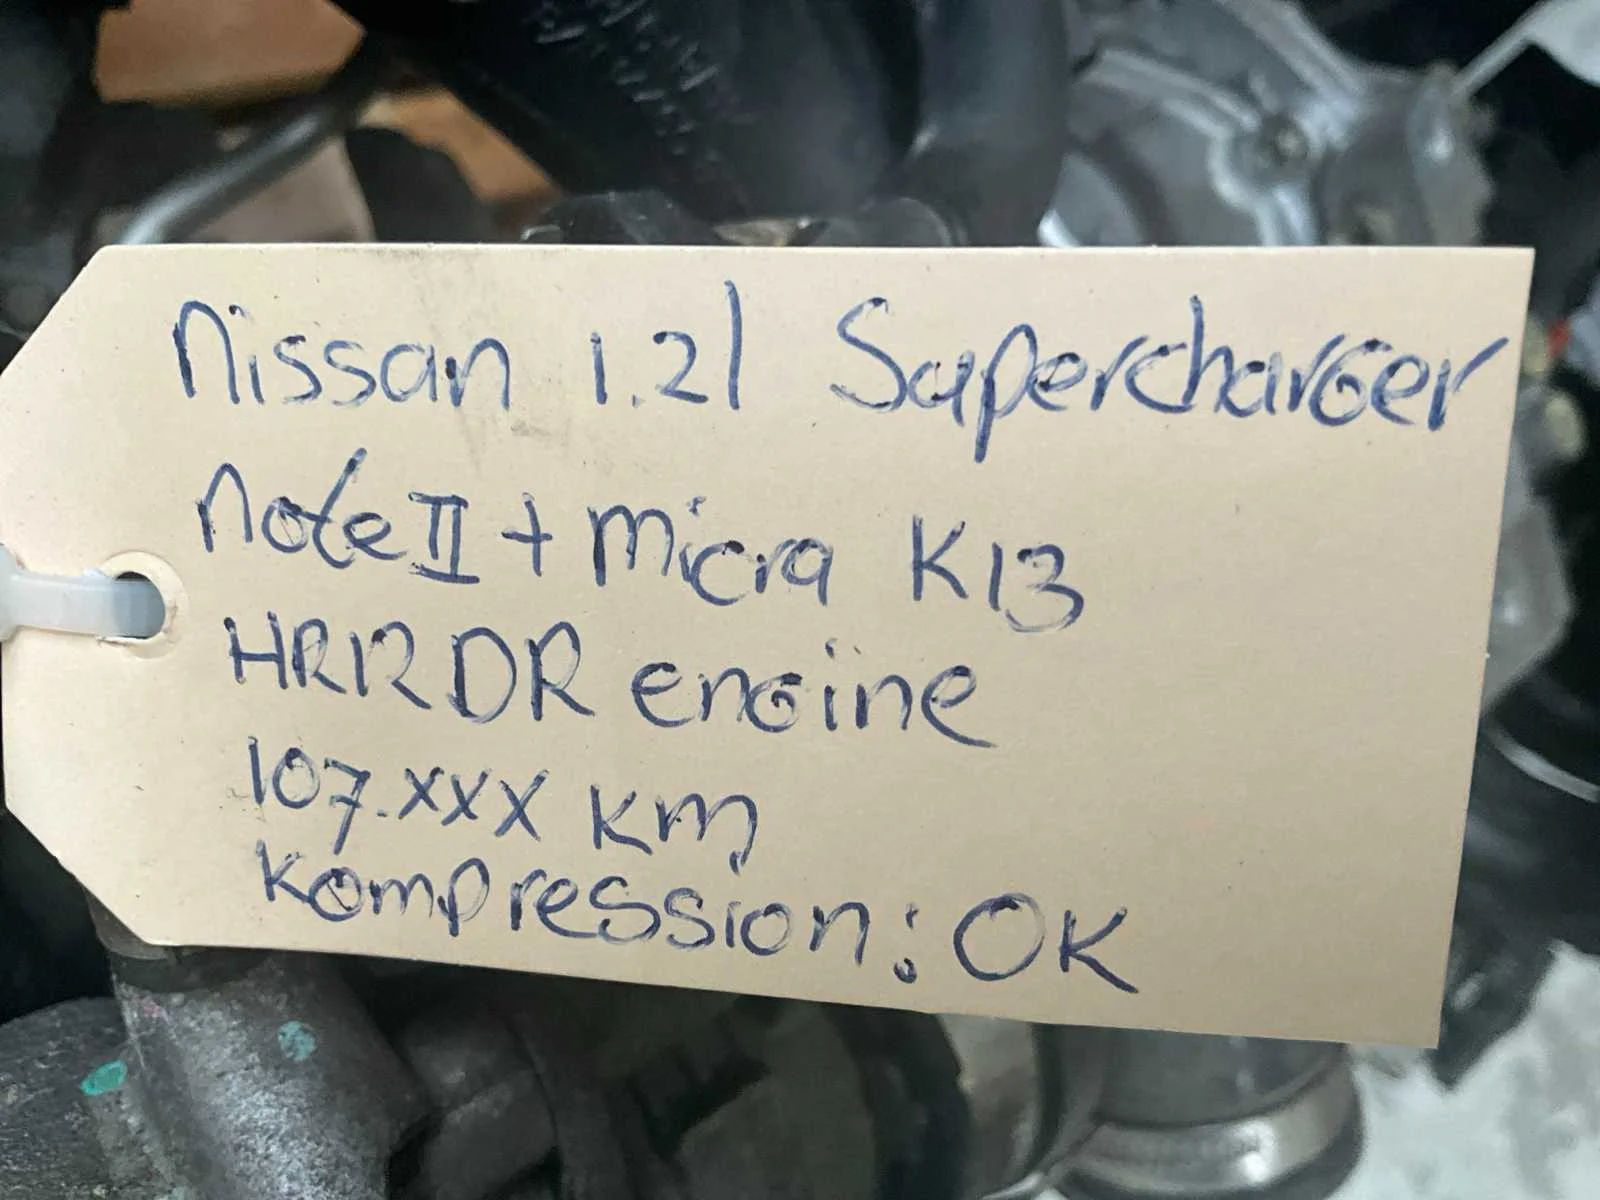 Nissan 1.2l Supercharger
Note II + Micra K13
HR12DR engine
107.xxx km
Kompression: OK